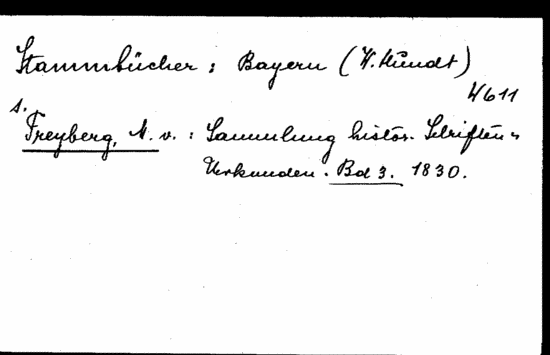 Stammbücher : Bayern (W. Hundt)
4611
s.
Freyberg, M. v. : Sammlung histor. Schriften u
Urkunden. Bd 3. 1830.